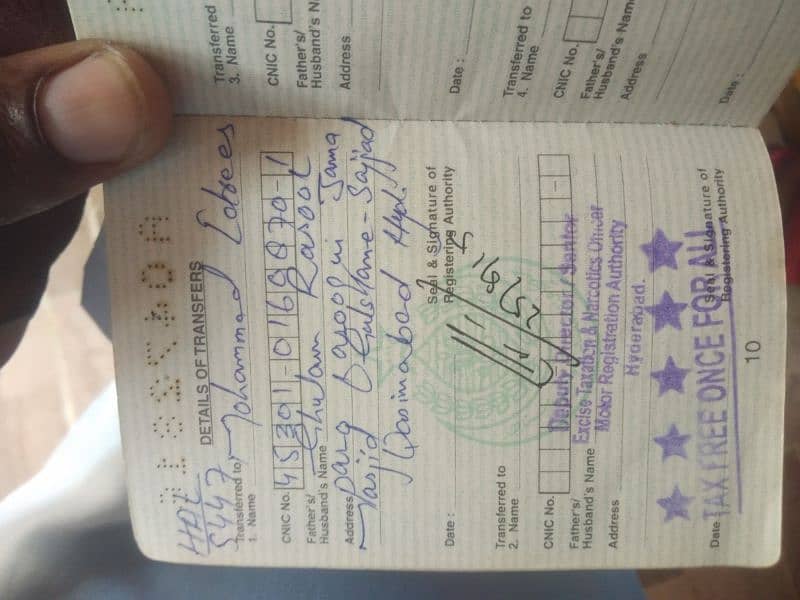 HDL
5447
DETAILS OF TRANSFERS
Transferred to
1. Name Mohammad Edrees
CNIC No. 45301-0169870-1
Father's/
Husband's Name Ghulam Rasool
Address
Masjid Gulshane-Sajjad
Qasimabad Hyd.
Date :
Seal & Signature of
Registering Authority
Transferred to
2. Name
CNIC No.
Father's/
Husband's Name
Address
Deputy Director / Senior
Excise Taxation & Narcotics Officer
Motor Registration Authority
Hyderabad.
Date
Seal & Signature of
Registering Authority
TAX FREE ONCE FOR ALL
10
Transferred
3. Name
CNIC No.
Father's/
Husband's
Address
Date :
Transferred to
4. Name
CNIC No.
Father's/
Husband's Name
Address
Date :